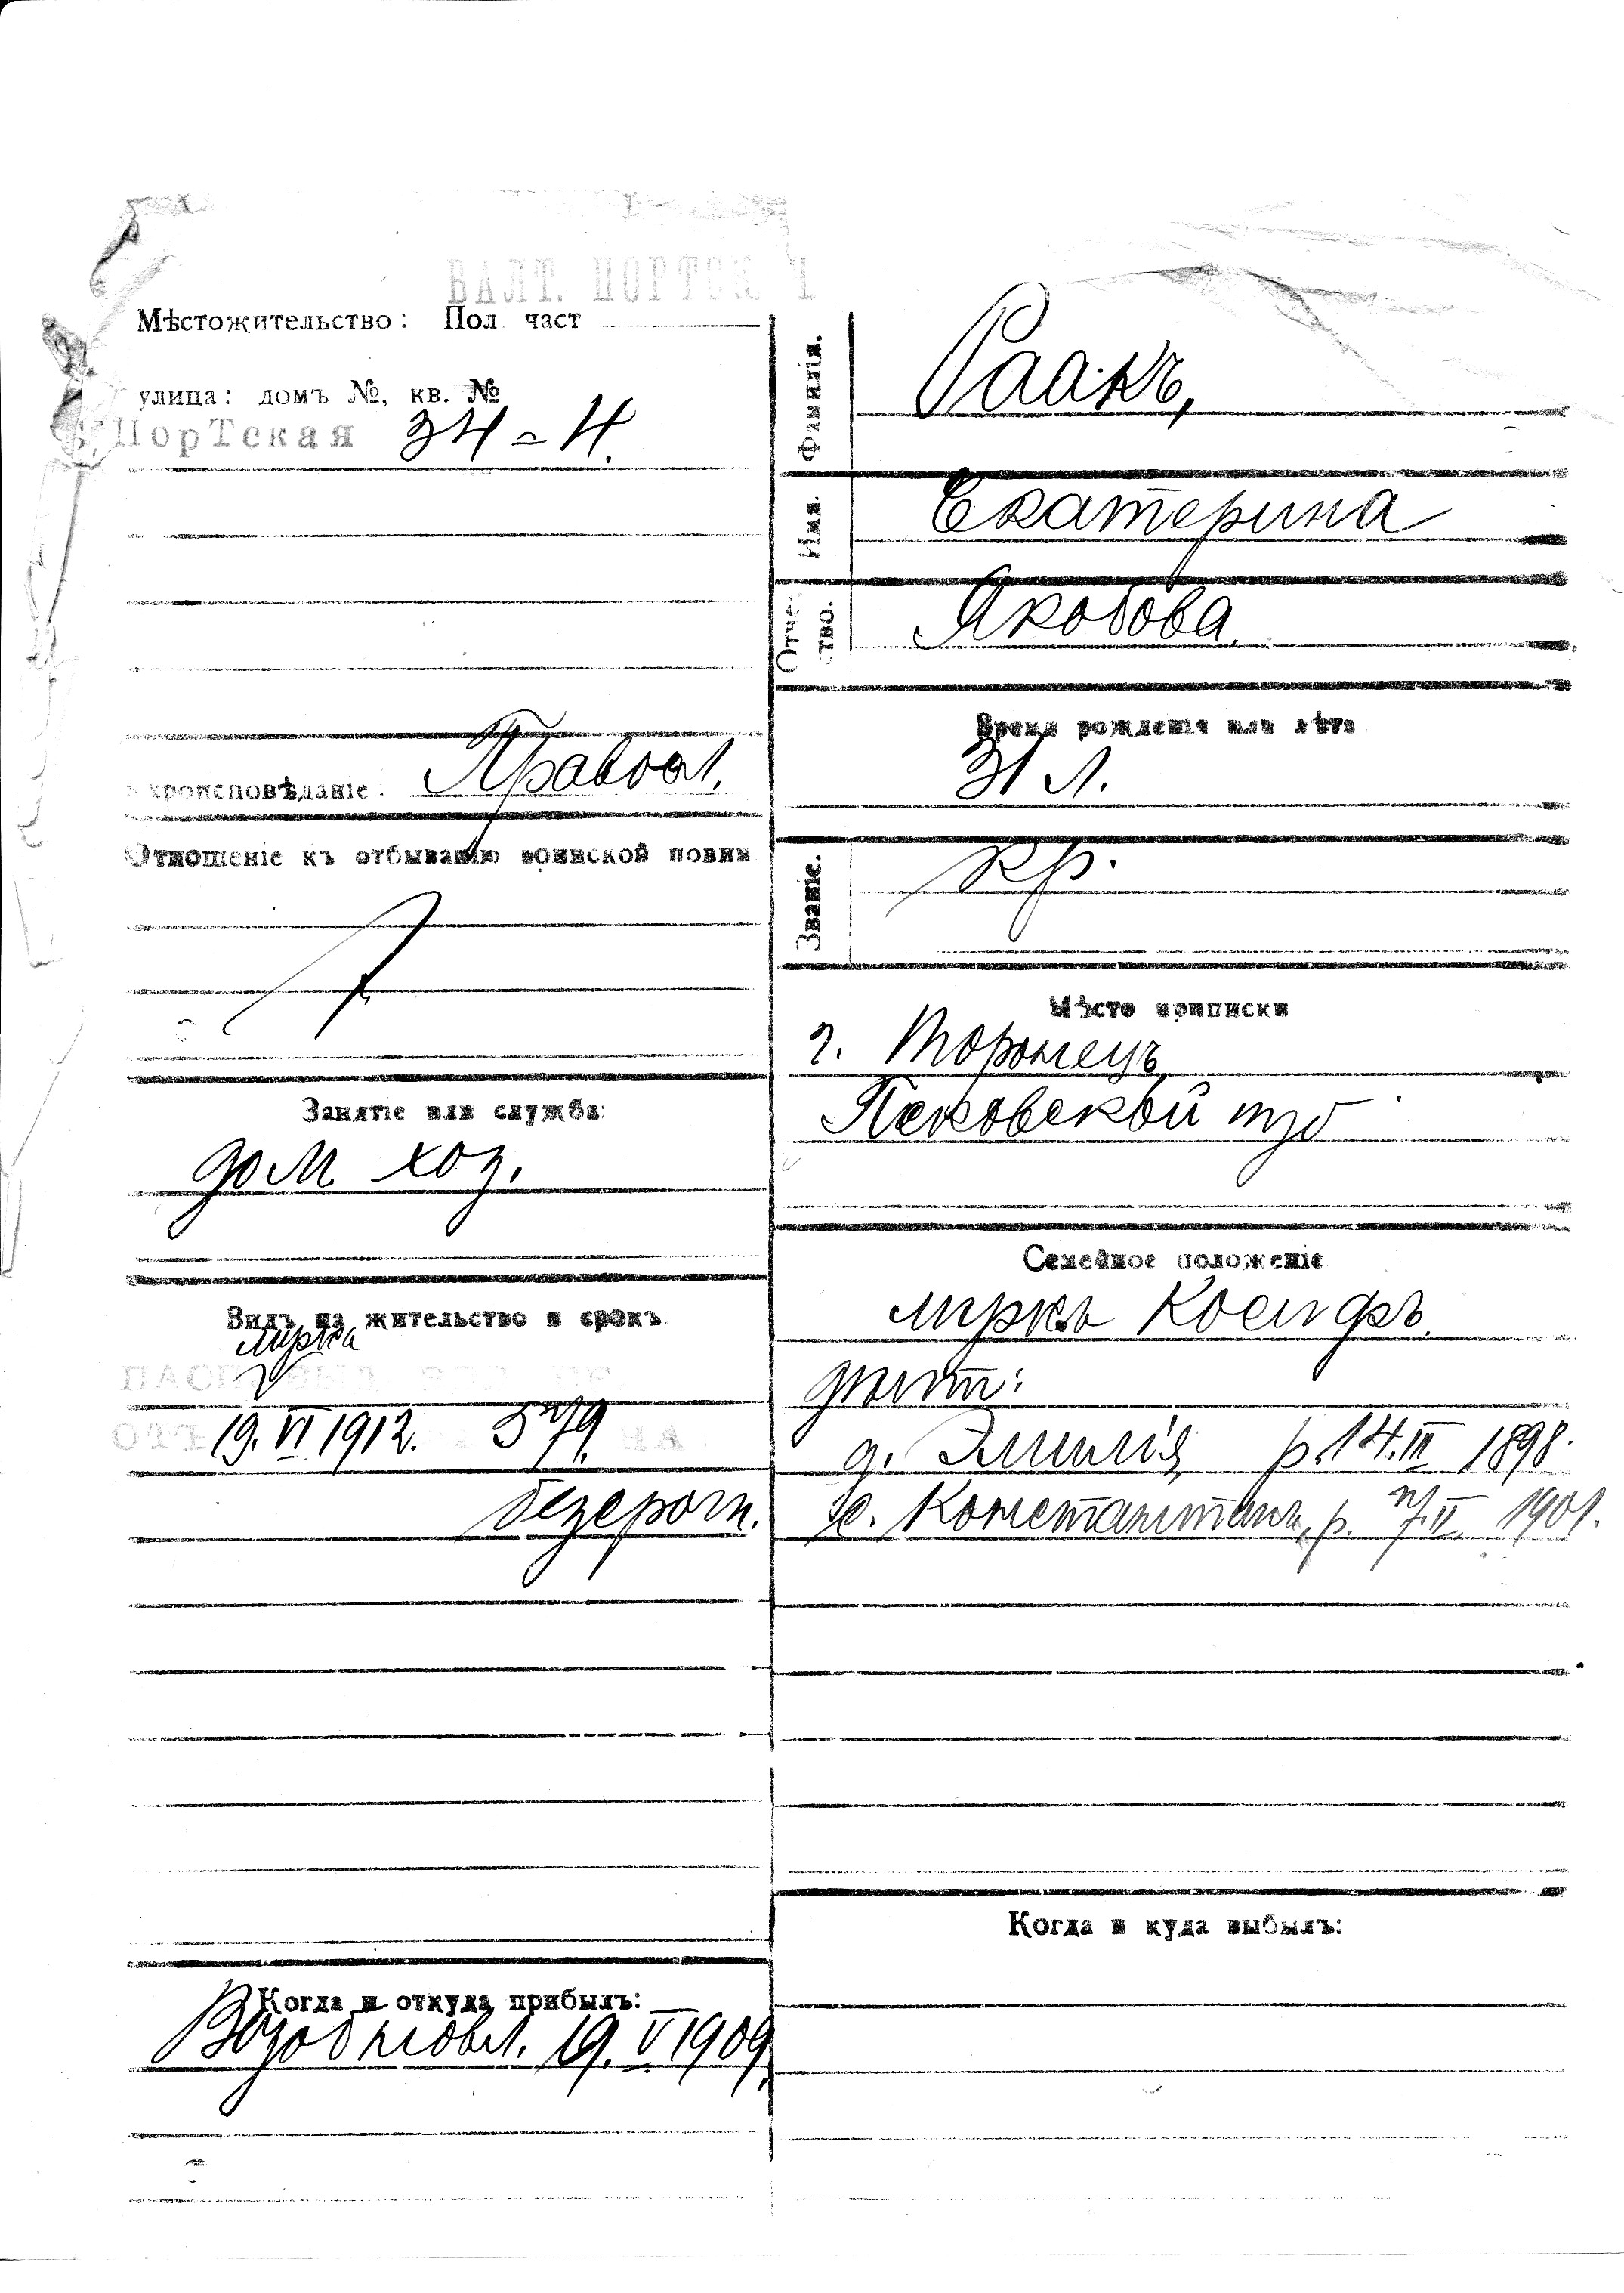 БАЛТ. ПОРТСК
Мѣстожительство: Пол. част
улица: домъ №, кв. №
Портская 34 = 4.
Вѣроисповѣданіе: Правосл.
Отношеніе къ отбыванію воинской повин
Занятіе или служба:
дом. хоз.
Видъ на жительство и срокъ
мужа
19. VI 1912. 579
безсроч.
Когда и откуда прибылъ:
Возобновл. 19. V 1909
Фамилія. Раакъ,
Имя. Екатерина
Отчество. Якобова.
Время рожденія или лѣта
31 л.
Званіе. Кр.
Мѣсто приписки
г. Торопецъ
Псковской губ
Семейное положеніе
мужъ Іосифъ
дѣти:
д. Эмилія р. 14. III 1898.
с. Константинъ, р. 7. II. 1901.
Когда и куда выбылъ: